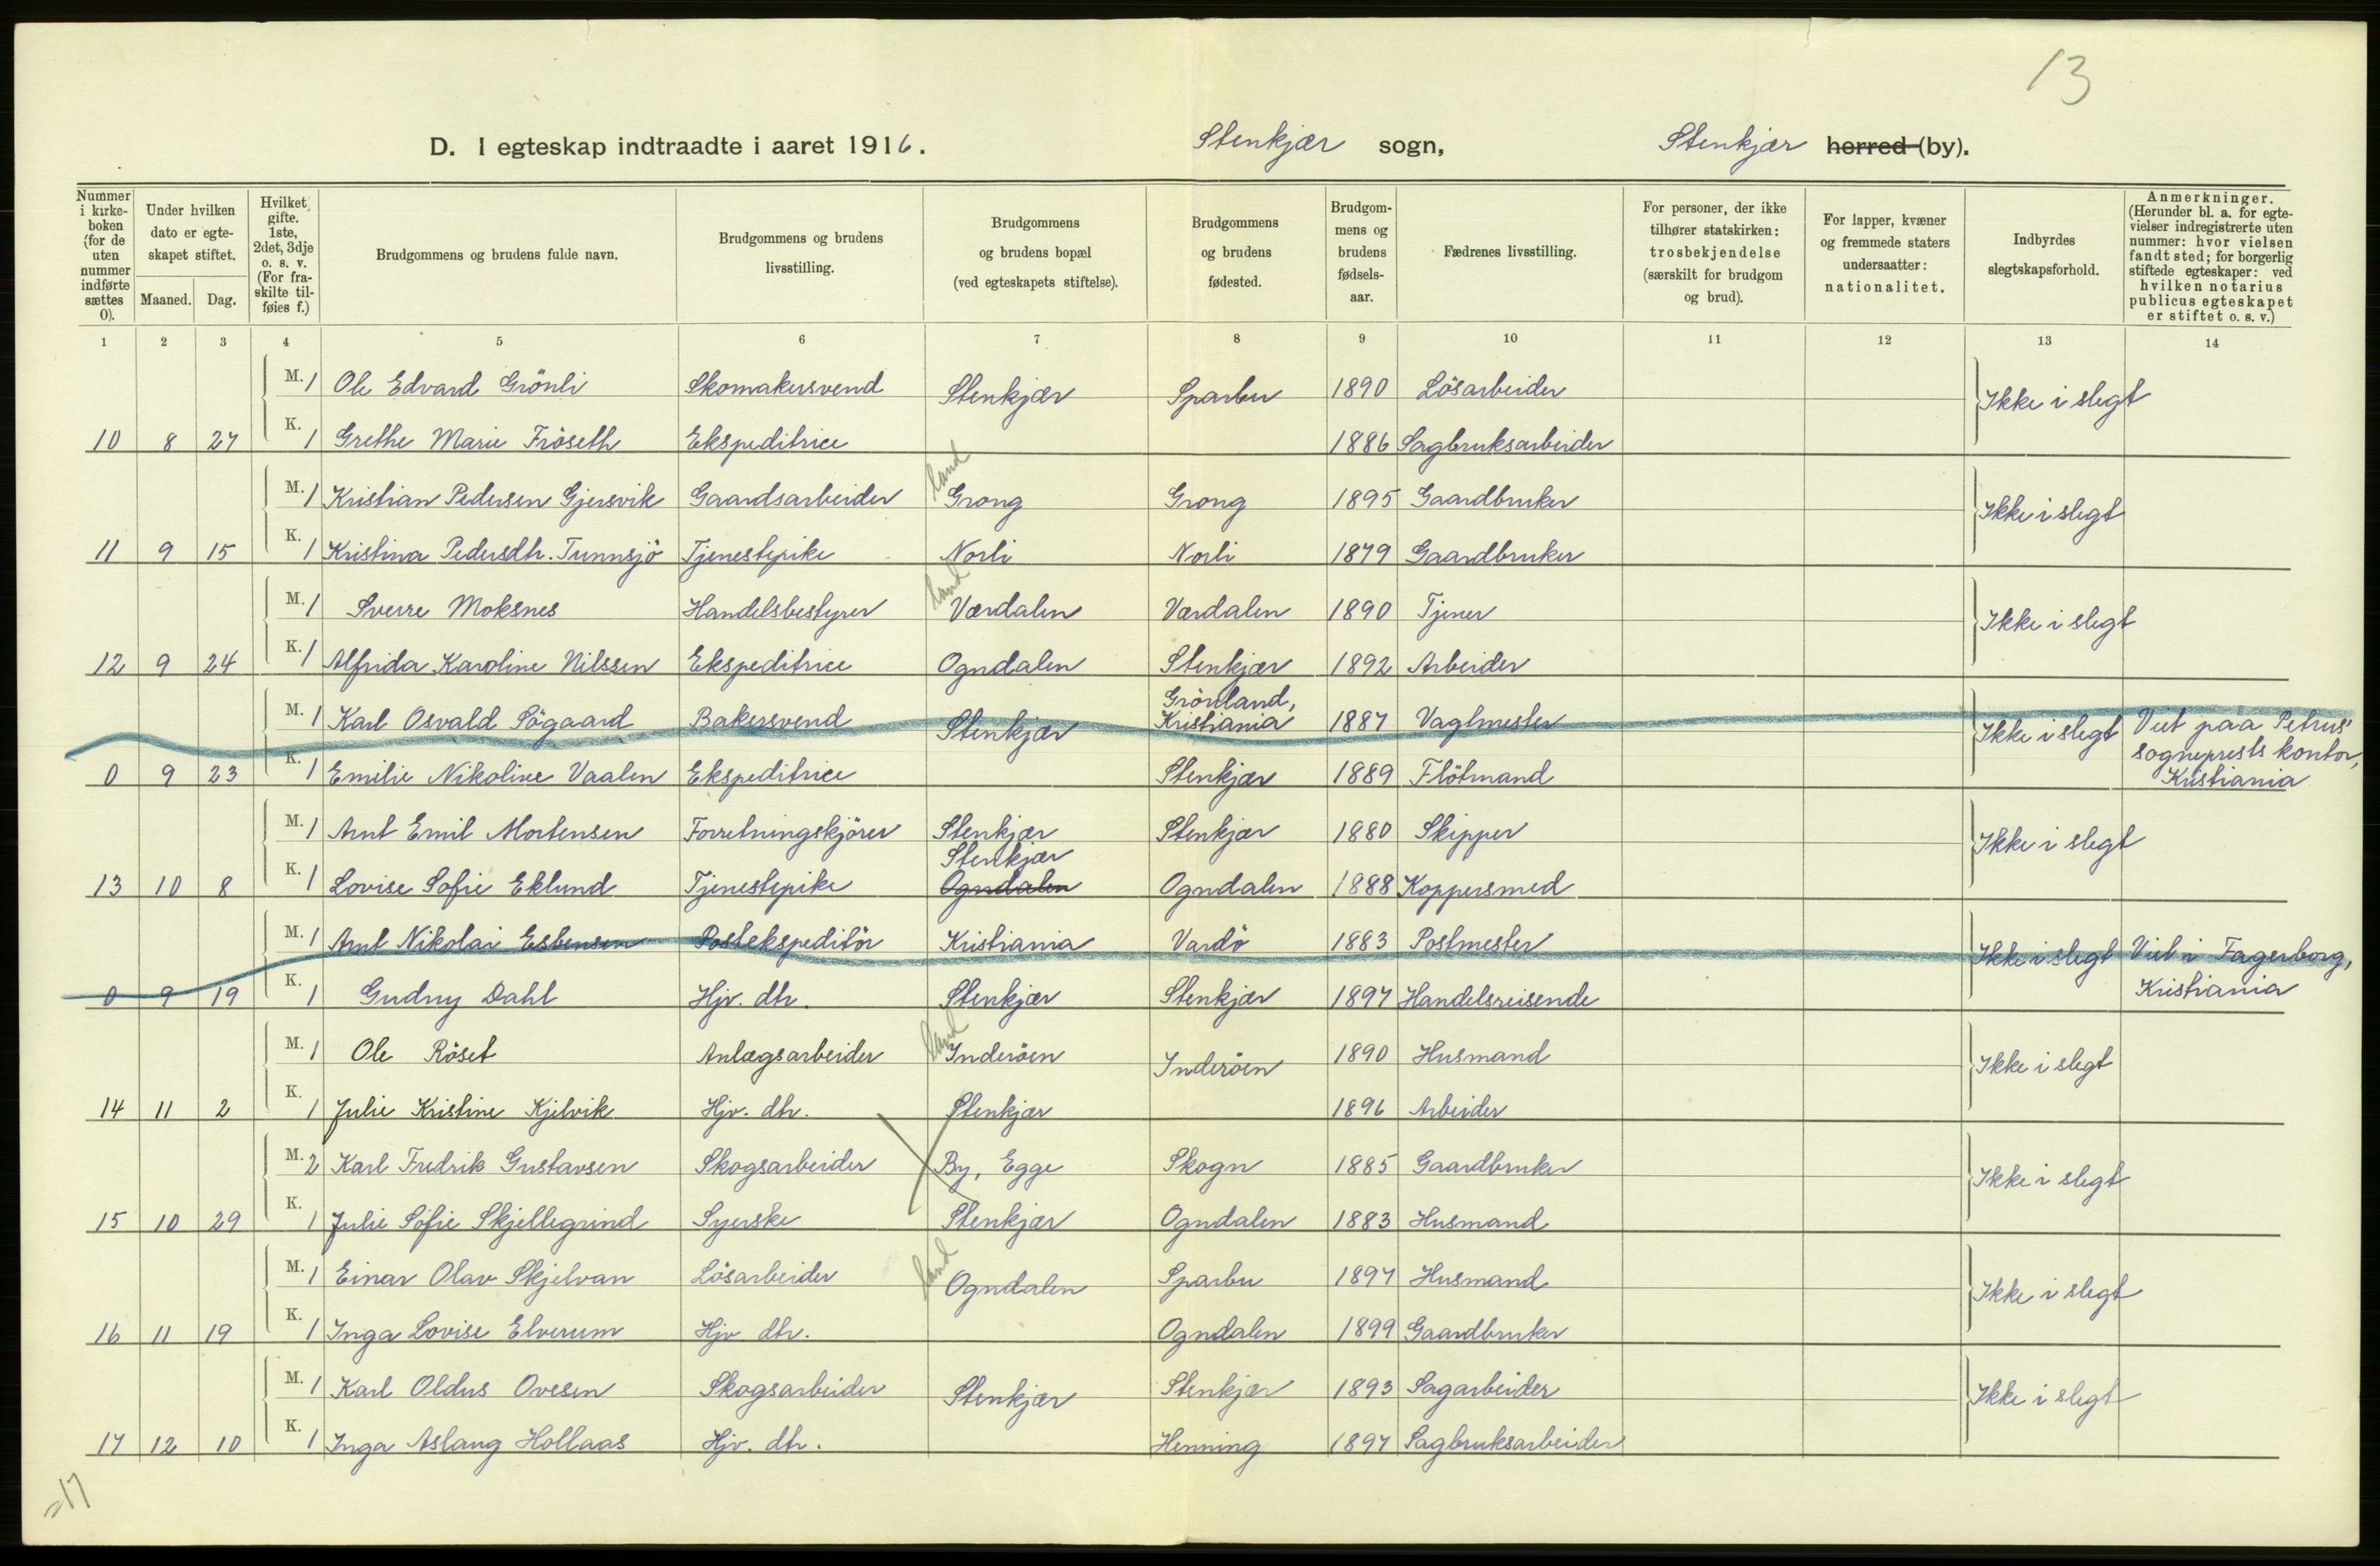 13
D. I egteskap indtraadte i aaret 1916. Stenkjær sogn, Stenkjær herred (by).
Nummer i kirke-boken (for de uten nummer indførte sættes 0).
Under hvilken dato er egte-skapet stiftet.
Maaned. Dag.
Hvilket gifte. 1ste, 2det, 3dje o. s. v. (For fra-skilte til-føies f.)
Brudgommens og brudens fulde navn.
Brudgommens og brudens livsstilling.
Brudgommens og brudens bopæl (ved egteskapets stiftelse).
Brudgommens og brudens fødested.
Brudgom-mens og brudens fødsels-aar.
Fædrenes livsstilling.
For personer, der ikke tilhører statskirken: trosbekjendelse (særskilt for brudgom og brud).
For lapper, kvæner og fremmede staters undersaatter: nationalitet.
Indbyrdes slegtskapsforhold.
Anmerkninger. (Herunder bl. a. for egte-vielser indregistrerte uten nummer: hvor vielsen fandt sted; for borgerlig stiftede egteskaper: ved hvilken notarius publicus egteskapet er stiftet o. s. v.)
1 2 3 4 5 6 7 8 9 10 11 12 13 14
M. 1 Ole Edvard Grönli Skomakersvend Stenkjær Sparbu 1890 Lösarbeider Ikke i slegt
10 8 27 K. 1 Grethe Marie Fröseth Ekspeditrice 1886 Sagbruksarbeider
land
M. 1 Kristian Pedersen Gjersvik Gaardsarbeider Grong Grong 1895 Gaardbruker Ikke i slegt
11 9 15 K. 1 Kristina Pedersdtr. Tunnsjö Tjenestepike Norli Norli 1879 Gaardbruker
land
M. 1 Sverre Moksnes Handelsbestyrer Værdalen Værdalen 1890 Tjener Ikke i slegt
12 9 24 K. 1 Alfrida Karoline Nilssen Ekspeditrice Ogndalen Stenkjær 1892 Arbeider
M. 1 Karl Osvald Sögaard Bakersvend Stenkjær Grönland, Kristiania 1887 Vagtmester Ikke i slegt Viet paa Petrus'
sogneprests kontor,
0 9 23 K. 1 Emilie Nikoline Vaalen Ekspeditrice Stenkjær 1889 Flötmand Kristiania
M. 1 Arnt Emil Mortensen Forretningskjörer Stenkjær Stenkjær 1880 Skipper Ikke i slegt
Stenkjær
13 10 8 K. 1 Lovise Sofie Eklund Tjenestepike Ogndalen Ogndalen 1888 Koppersmed
M. 1 Arnt Nikolai Esbensen Postekspeditör Kristiania Vardö 1883 Postmester Ikke i slegt Viet i Fagerborg,
0 9 19 K. 1 Gudny Dahl Hjv. dtr. Stenkjær Stenkjær 1897 Handelsreisende Kristiania
land
M. 1 Ole Röset Anlægsarbeider Inderöen Inderöen 1890 Husmand Ikke i slegt
14 11 2 K. 1 Julie Kristine Kjelvik Hjv. dtr. Stenkjær 1896 Arbeider
M. 2 Karl Fredrik Gustavsen Skogsarbeider By, Egge Skogn 1885 Gaardbruker Ikke i slegt
15 10 29 K. 1 Julie Sofie Skjellegrind Syerske Stenkjær Ogndalen 1883 Husmand
land
M. 1 Einar Olav Skjelvan Lösarbeider Ogndalen Sparbu 1897 Husmand Ikke i slegt
16 11 19 K. 1 Inga Lovise Elverum Hjv dtr. Ogndalen 1899 Gaardbruker
M. 1 Karl Oldus Ovesen Skogsarbeider Stenkjær Stenkjær 1893 Sagarbeider Ikke i slegt
17 12 10 K. 1 Inga Aslaug Hollaas Hjv. dtr. Henning 1897 Sagbruksarbeider
=17